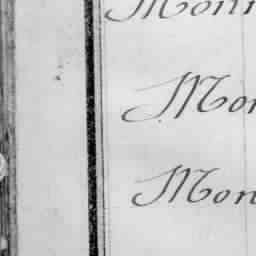 Moni
Mon
Mon